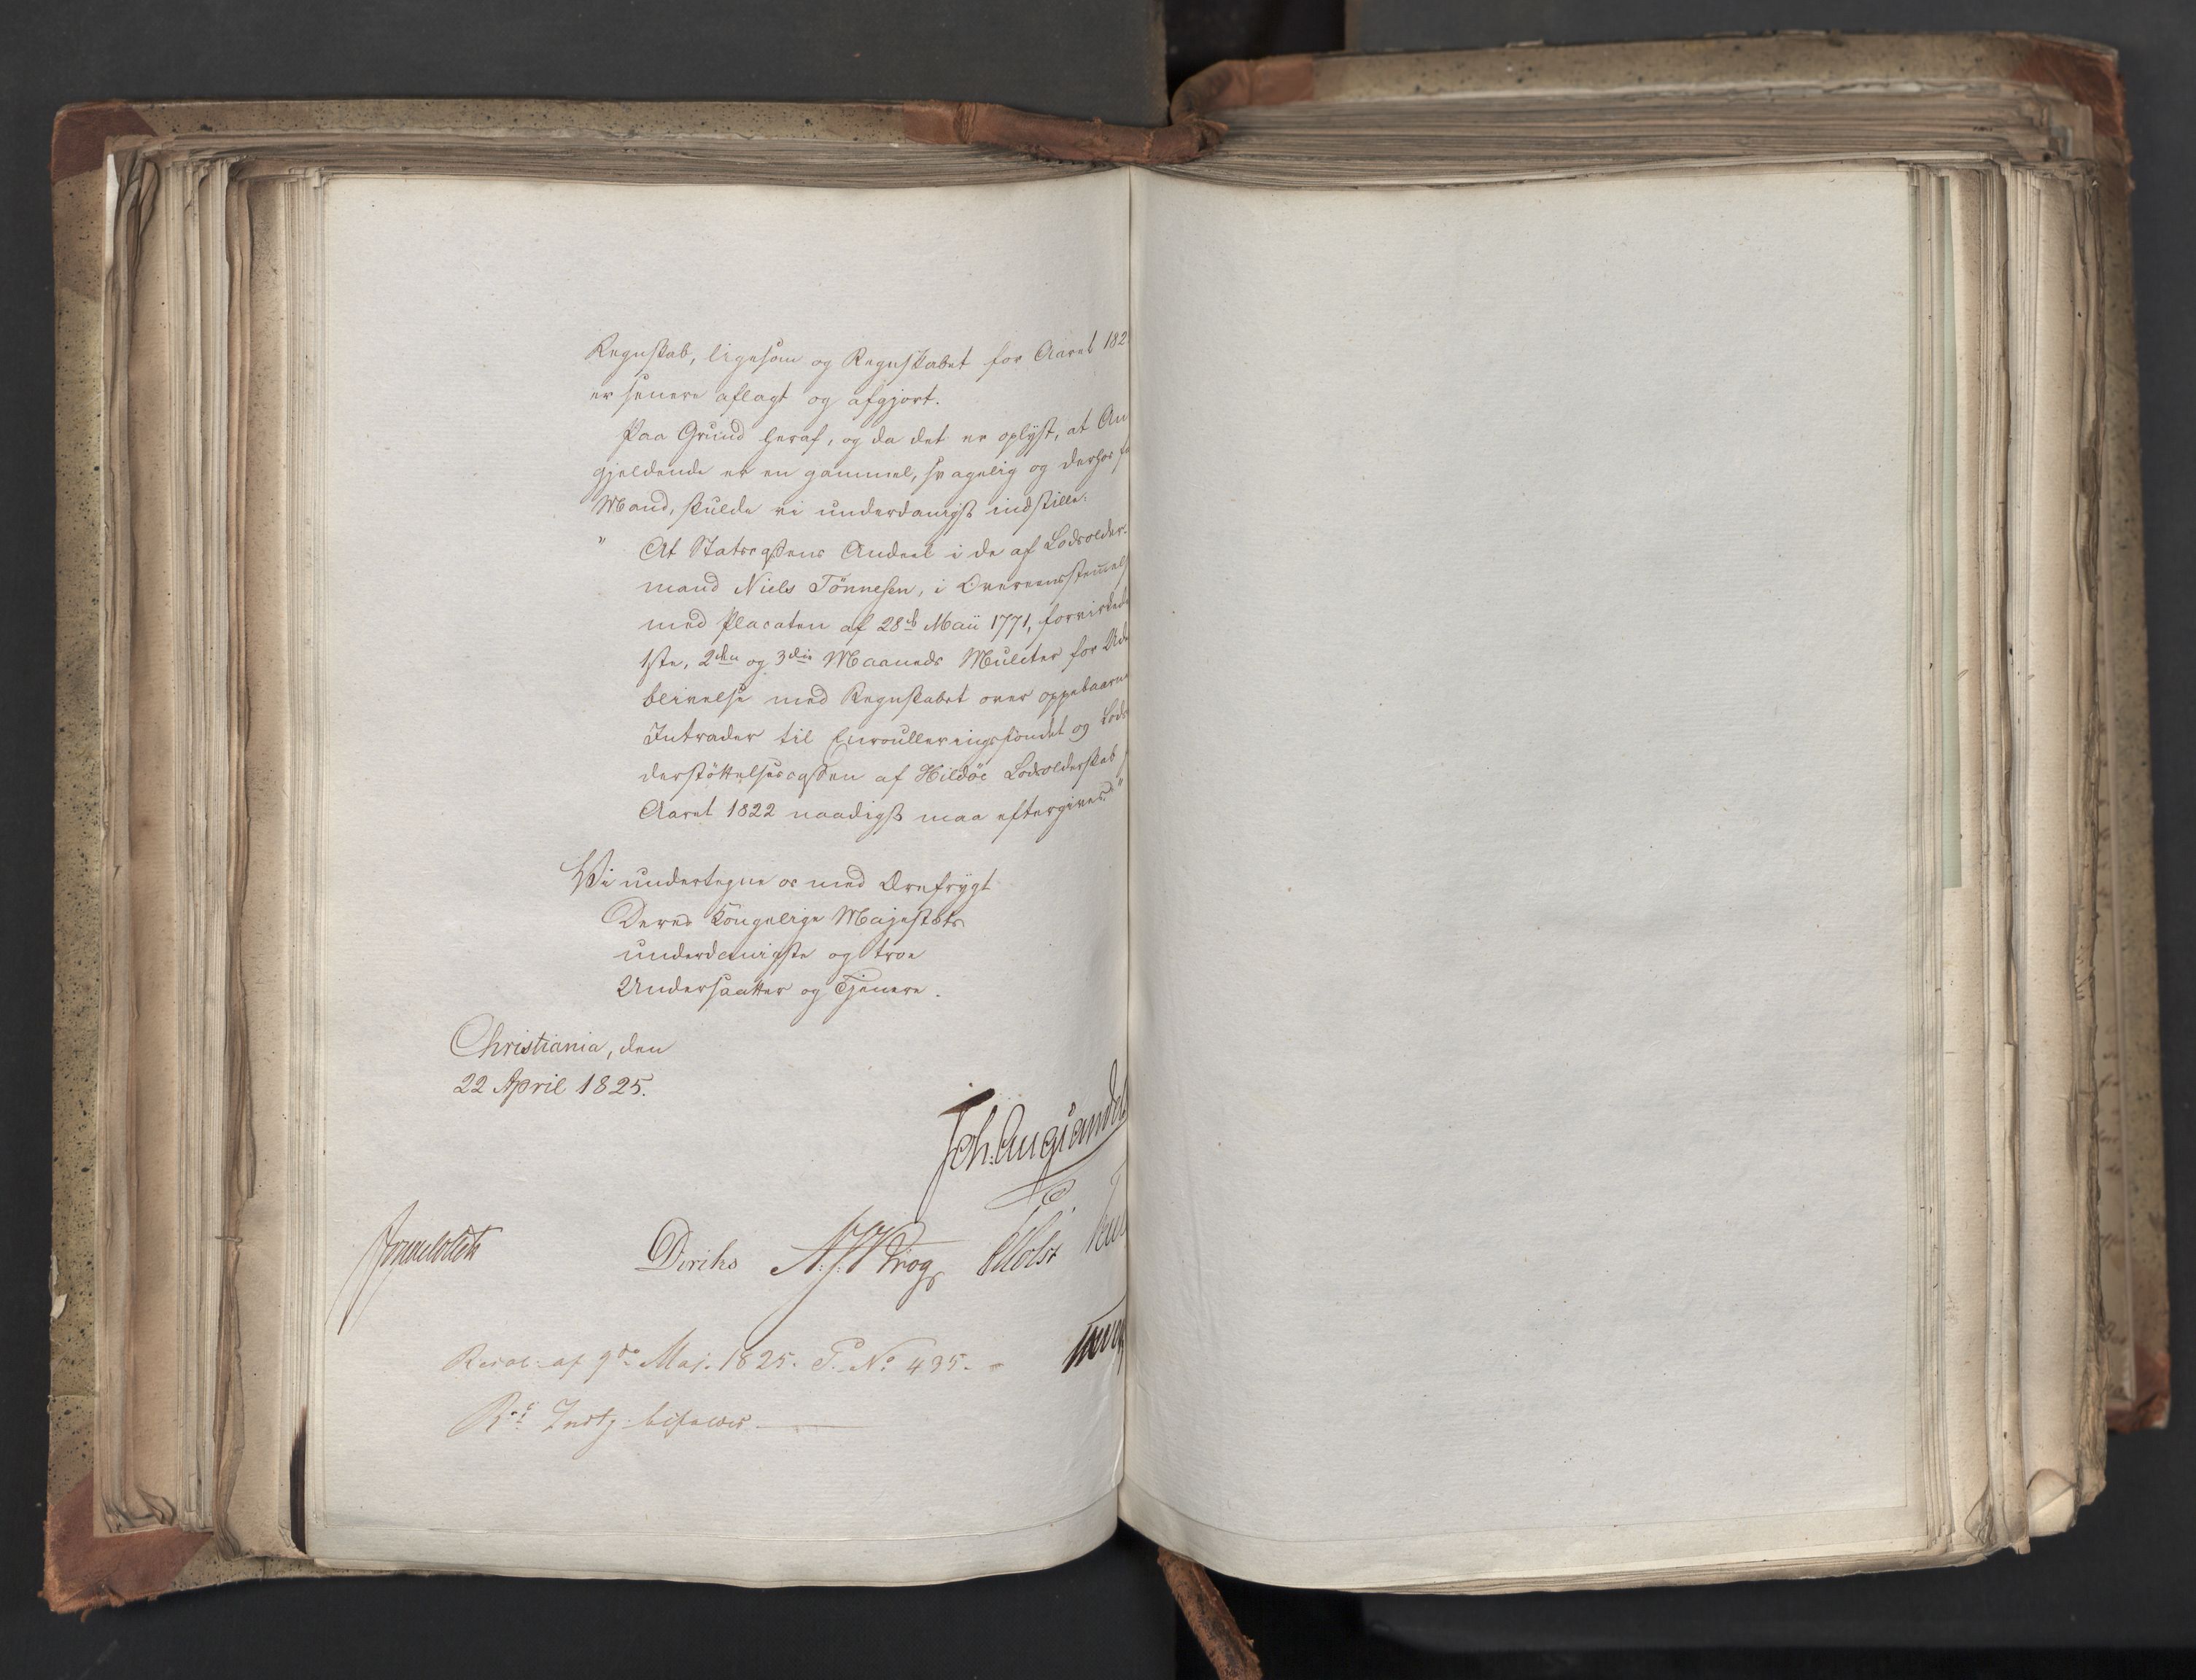 Regnskab, ligesom og Regnskabet for Aaret 182
er senere aflagt og afgjort.
Paa Grund heraf, og da det er oplyst, at An
gjeldende er en gammel, svagelig og derhos
Mand, skulde vi underdanigst indstille:
" At Statscassens Andeel i de af Lodsolder-
mand Niels Tönnesen, i Overeensstemmels
med Placaten af 28de Maii 1771, forvirkede
1ste, 2den og 3die Maaneds Mulcter for Ude
blivelse med Regnskabet over oppebaarne
Intrader til Enroulleringsfondet og Lods
derstöttelsescassen af Hildöe Lodsolderskab
Aaret 1822 naadigst maa eftergives."
Vi undertegne os med Ærefrygt
Deres Kongelige Majestæts
underdanigste og troe
Undersaatter og Tjenere.
Christiania, den
22 April 1825.
Joh. Aug. Sandels
Sommelhielm
Diriks
Krog
Holst
Resol: af 9de Maj. 1825. P. No 435.
Rs: Indst. bifaldes.